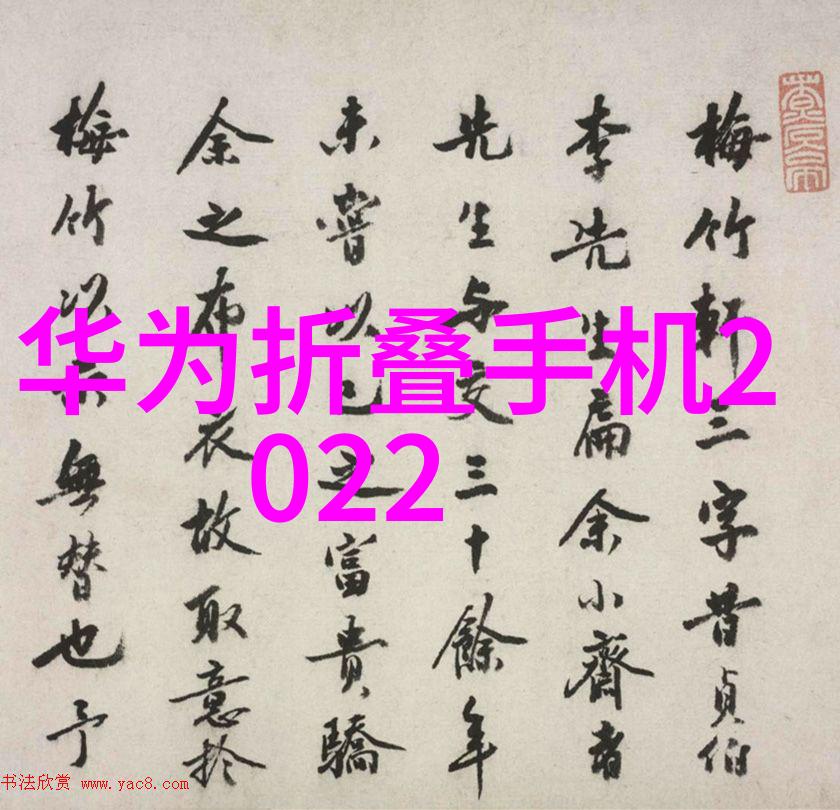 梅竹軒三字昔貞伯
李先生扁余小齋者
先生与交三十餘年
未嘗以己之富貴驕
余之布衣故取意於
梅竹况亦無替也予
华为折叠手机2
022
书法欣赏 www.yac8.com